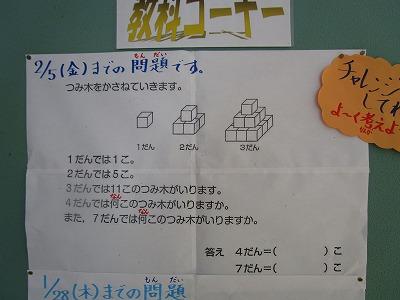 教科コーナー
2/5(金)までの問題です。
もん だい
つみ木をかさねていきます。
1だん 2だん 3だん
1だんでは1こ。
2だんでは5こ。
3だんでは11このつみ木がいります。
4だんでは何このつみ木がいりますか。
なん
また,7だんでは何このつみ木がいりますか。
なん
答え 4だん=( )こ
7だん=( )こ
チャレンジ
してね
よ〜く考えよ
1/28(木)までの問題
もん だい